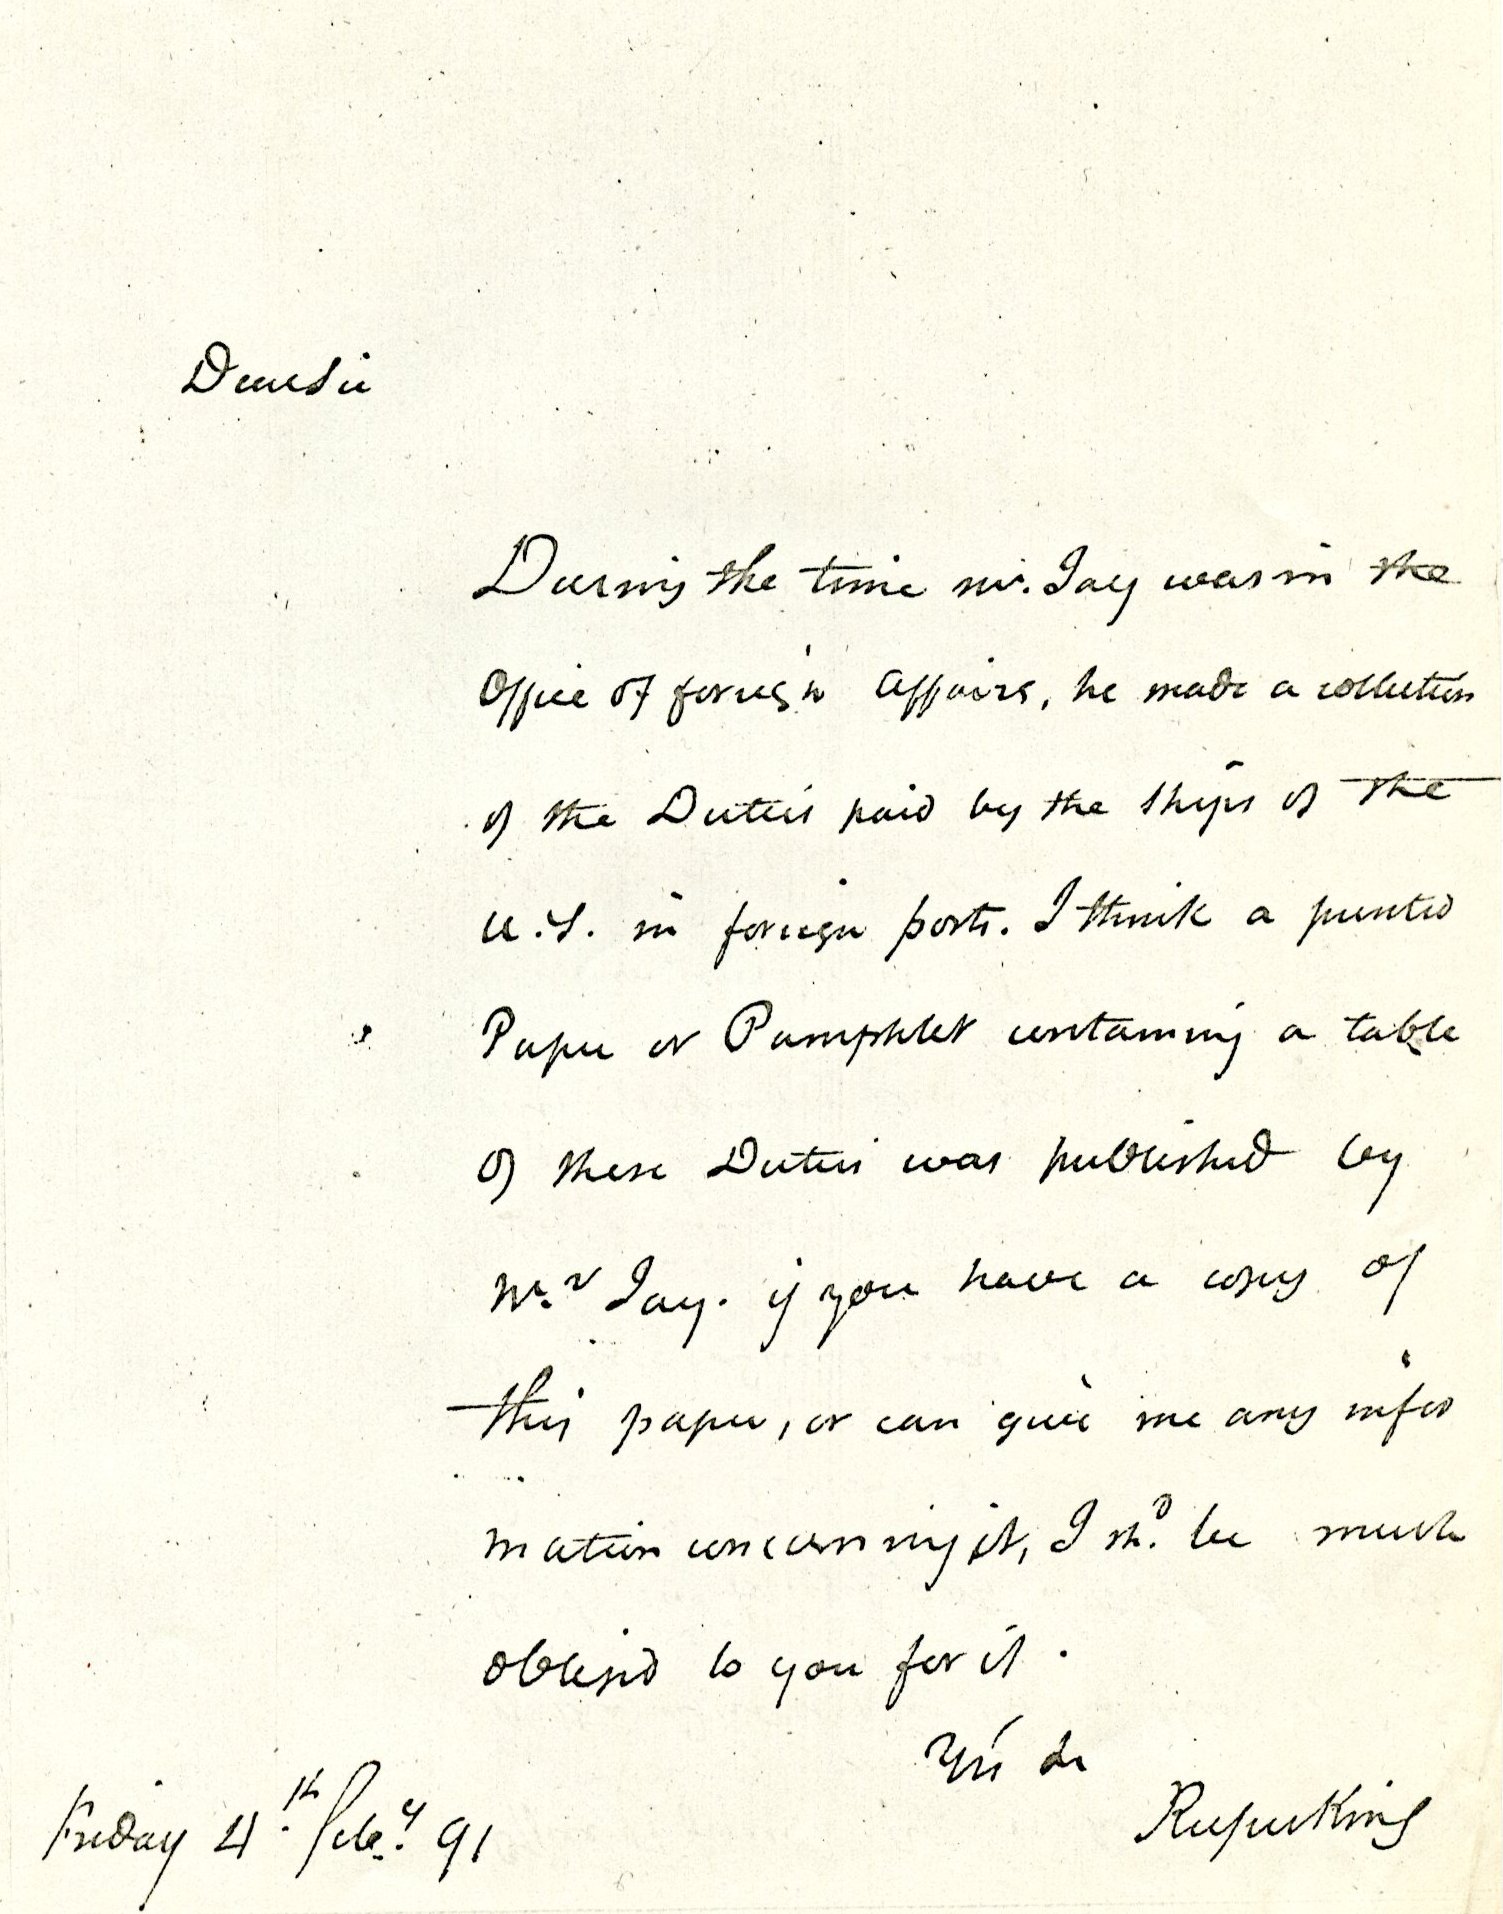 Dear Sir
During the time mr. Jay was in the
Office of foreign Affairs, he made a collection
of the Duties paid by the Ships of the
U.S. in foreign ports. I think a printed
Paper or Pamphlet containing a table
of these Duties was published by
Mr. Jay. if you have a copy of
this paper, or can give me any infor
mation concerning it, I shd. be much
obliged to you for it.
Yrs &c
Rufus King
Friday 4.th Feby. 91